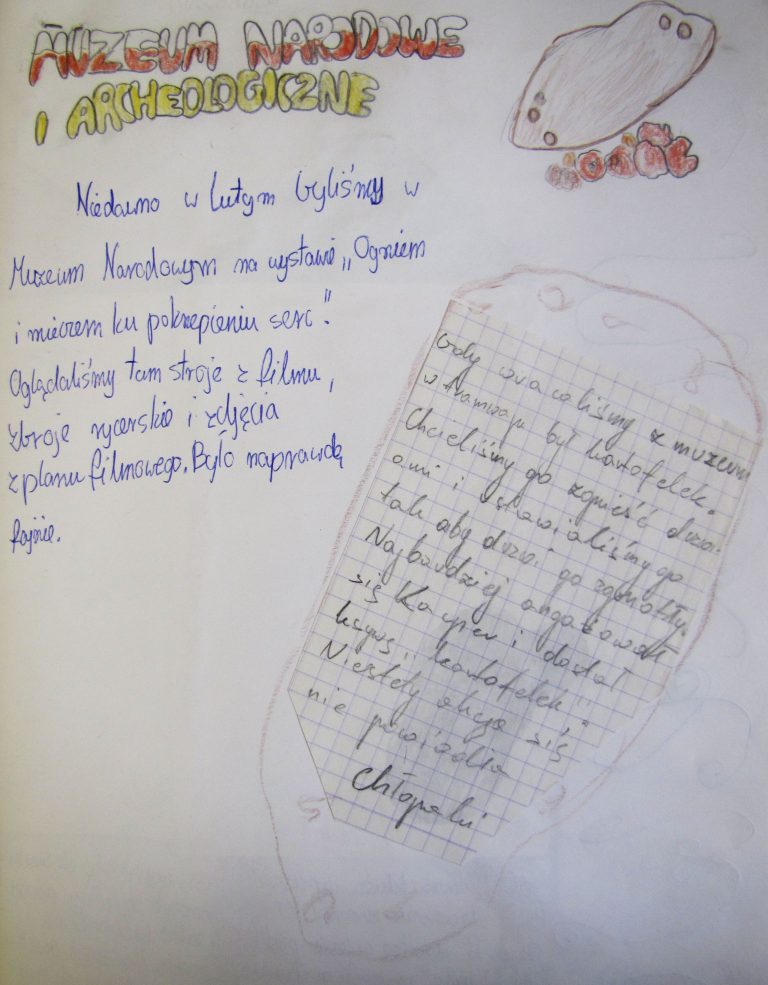 MUZEUM NARODOWE
I ARCHEOLOGICZNE
Niedawno w lutym byliśmy w
Muzeum Narodowym na wystawie „Ogniem
i mieczem ku pokrzepieniu serc".
Oglądaliśmy tam stroje z filmu,
zbroje rycerskie i zdjęcia
z planu filmowego. Było naprawdę
fajnie.
Gdy wracaliśmy z muzeum
w tramwaju był kartofelek.
Chcieliśmy go zgnieść drzwi-
ami i stawialiśmy go
tak aby drzwi go zgniotły.
Najbardziej angażował
się Kacper i dostał
ksywę „kartofelek".
Niestety akcja się
nie powiodła
Chłopaki